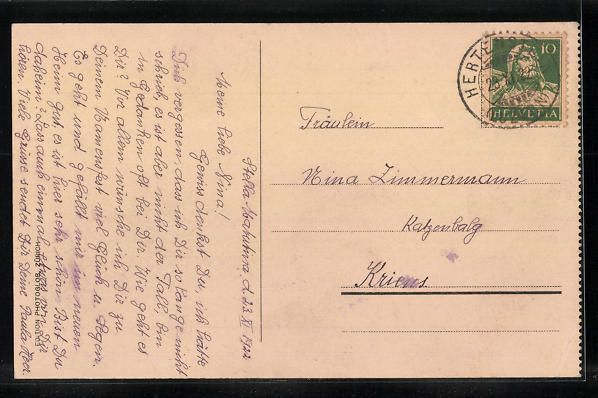 Stella Matutina d. 23. XI. 1922
Meine liebe Nina!
Gewiss denkst Du, ich hätte
Dich vergessen, das ich Dir so lange nicht
schrieb, es ist aber nicht der Fall, bin
in Gedanken oft bei Dir. Wie geht es
Dir? Vor allem wünsche ich Dir zu
Deinem Namensfest viel Glück u. Segen.
Es geht und gefällt mir im neuen
Heim gut, es ist hier sehr schön. Bist Du
daheim? Lass auch einmal etwas von Dir
hören. Viele Grüsse sendet Dir Deine Paula
Fräulein
Nina Zimmermann
Katzenbalg
Kriens
10
HELVETIA